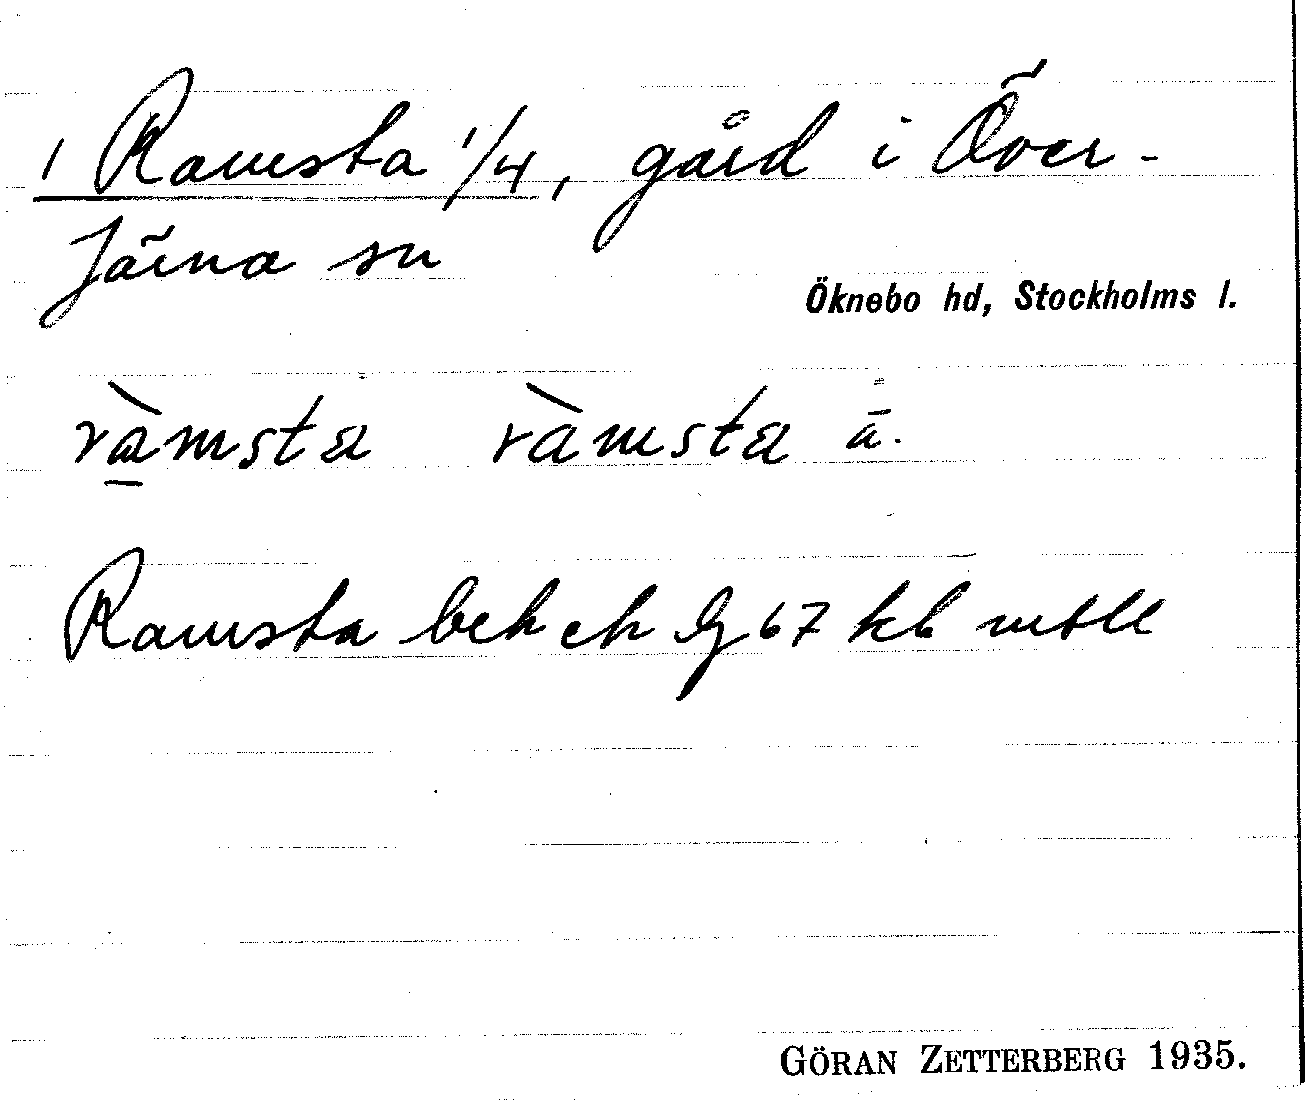 1 Ramsta 1/4, gård i Över-
Järna sn
Öknebo hd, Stockholms l.
ràmsta ràmsta
Ramsta 67 kb
GÖRAN ZETTERBERG 1935.